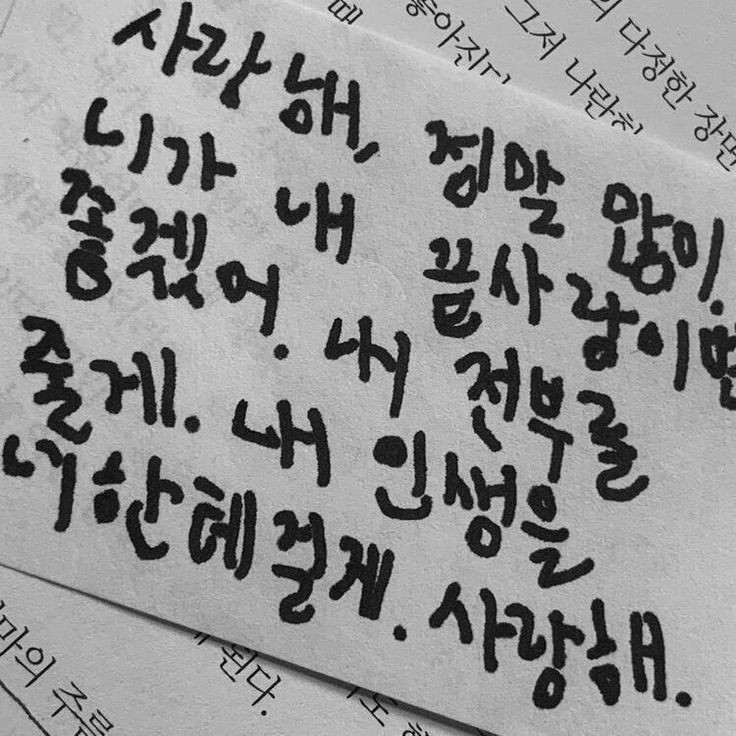 때
좋아진다
그저 나란히
의 다정한 장면
사랑해, 정말 많이.
니가 내 끝사랑이면
좋겠어. 내 전부를
줄게. 내 인생을
너한테 걸게. 사랑해.
마의 주름
게 된다.